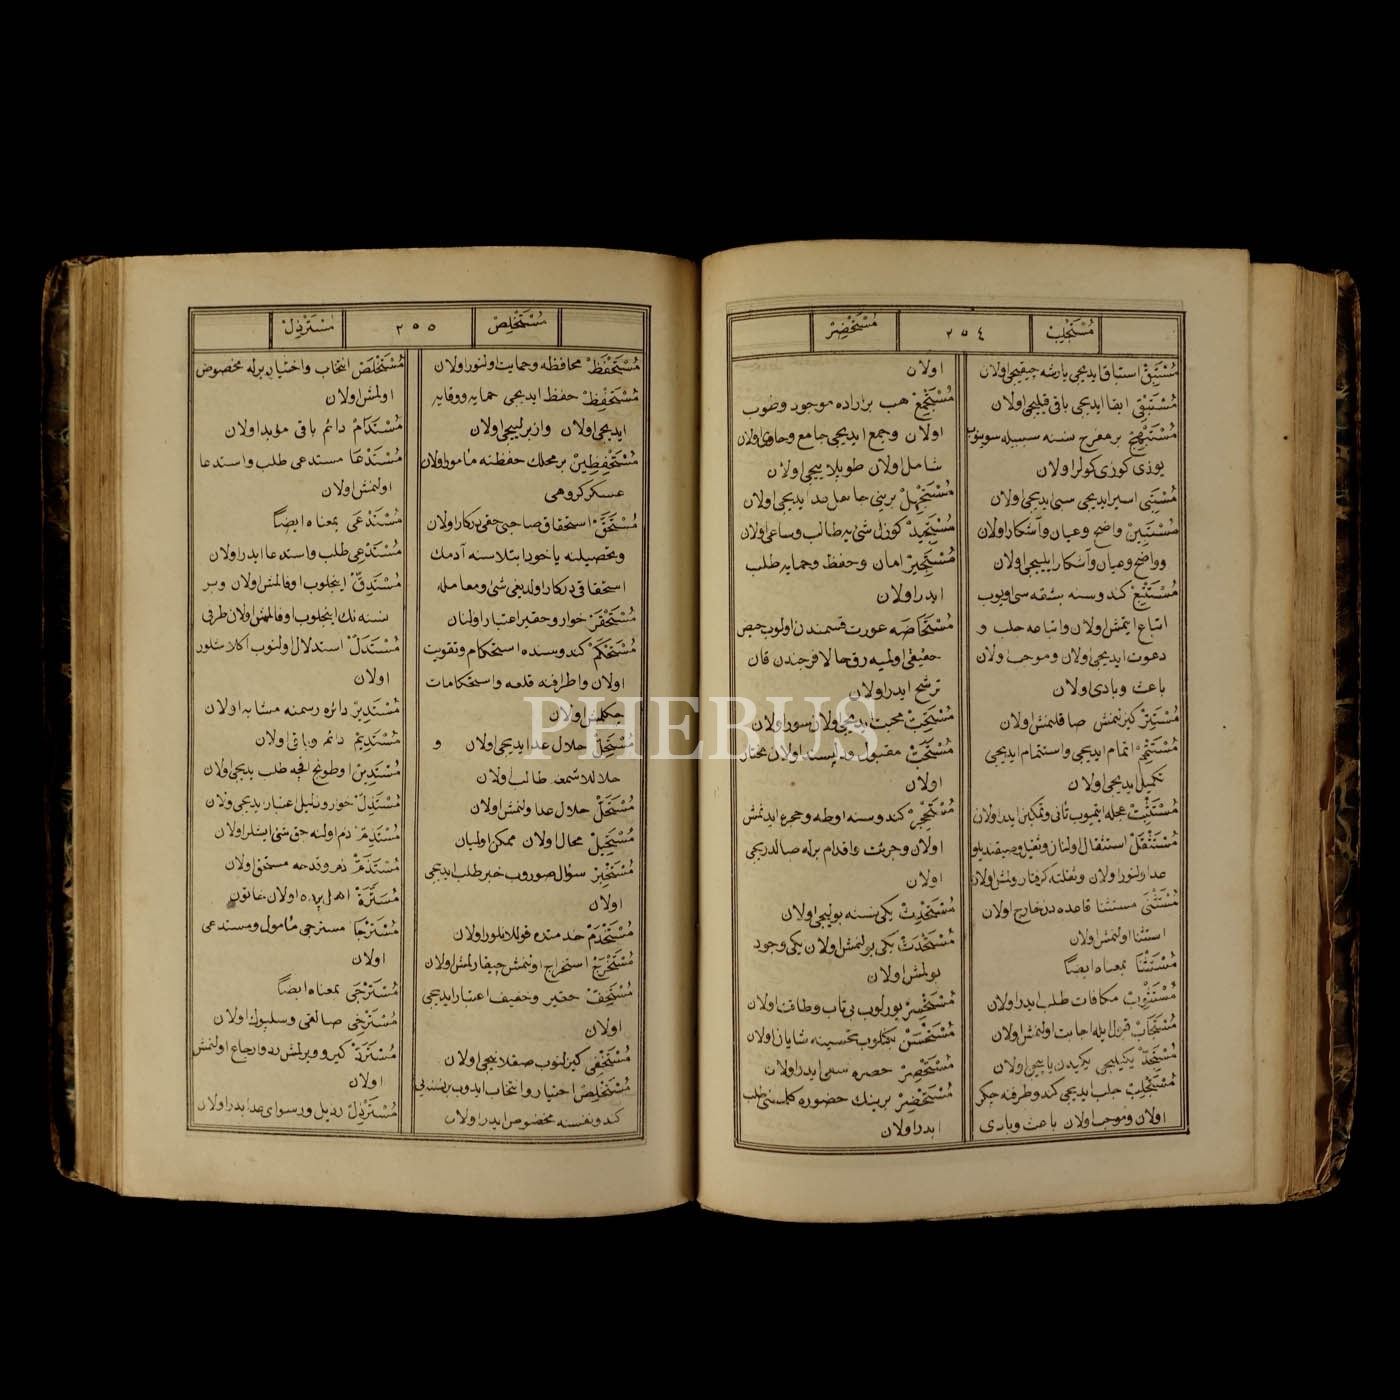 مُسْتَجْلِبْ ٢٥٤ مُسْتَحْضِرْ
مُسْتَبِقْ استباق ایدیجی یارشه چیقیجی اولان
مُسْتَبْقِی ابقا ایدیجی باقی قیلیجی اولان
یوزی کوزی کولر اولان
مُسْتَبِی اسیر ایدیجی سبی ایدیجی اولان
مُسْتَبِینْ واضح وعیان وآشکار اولان
وواضح وعیان وآشکار ایلییجی اولان
مُسْتَتْبِعْ کندوسنه بشقه سی اویوب
اتباع ایتمش اولان واتباعه جلب و
دعوت ایدیجی اولان وموجب اولان
باعث وبادی اولان
مُسْتَتِرْ کیزلنمش صاقلنمش اولان
مُسْتَتِمّ اتمام ایدیجی واستتمام ایدیجی
تکمیل ایدیجی اولان
مُسْتَثْبِتْ عجله ایتمیوب تأنی وتمکین ایدر اولان
مُسْتَثْقَلْ استثقال اولنان وثقیل
مُسْتَثْنَی مستثنا قاعده دن خارج اولان
استثنا اولنمش اولان
مُسْتَثْنَا بمعناه ایضاً
مُسْتَثْوِبْ مکافات طلب ایدر اولان
مُسْتَجَابْ قبول ایله اجابت اولنمش اولان
مُسْتَجِدّ یکیلیجی یکیدن یاپیجی اولان
مُسْتَجْلِبْ جلب ایدیجی کندو طرفنه چکر
اولان وموجب اولان باعث وبادی
اولان
مُسْتَجْمِعْ هب بر اراده موجود وطوب
اولان وجمع ایدیجی جامع وحاوی اولان
شامل اولان طوپلاییجی اولان
مُسْتَجْهِلْ برینی جاهل عد ایدیجی اولان
مُسْتَجِیدْ کوزل شیئه طالب وساعی اولان
مُسْتَجِیرْ امان وحفظ وحمایه طلب
ایدر اولان
مُسْتَحَاضَه عورت قسمندن اولوب حیض
حقیقی اولمیه رق حالا فرجندن قان
ترشح ایدر اولان
مُسْتَحِبّ محبت ایدیجی اولان سور اولان
مُسْتَحَبّ مقبول وپسند اولان مختار
اولان
مُسْتَحْجِرْ کندوسنه اوطه وحجره ایدنمش
اولان وجرئت واقدام برله صالدریجی
اولان
مُسْتَحْدِثْ یکی نسنه بولیجی اولان
مُسْتَحْدَثْ یکی بولنمش اولان یکی وجود
بولمش اولان
مُسْتَحْسِرْ یورلوب بی تاب وطاقت اولان
مُسْتَحْسَنْ بکنلوب تحسینه شایان اولان
مُسْتَحْصِرْ حصره سعی ایدر اولان
مُسْتَحْضِرْ برینك حضوره کلمسنی طلب
ایدر اولان
مُسْتَخْلِصْ ٢٥٥ مُسْتَرْذِلْ
مُسْتَحْفَظْ محافظه وحمایت اولنور اولان
مُسْتَحْفِظْ حفظ ایدیجی حمایه ووقایه
ایدیجی اولان وازبرلییجی اولان
مُسْتَحْفِظِینْ بر محلك حفظنه مأمور اولان
عسکر کروهی
مُسْتَحَقّ استحقاق صاحبی حقی درکار اولان
وتحصیلنه یاخود ابتلاسنه آدمك
استحقاقی درکار اولدیغی شی ومعامله
مُسْتَحْقَرْ خوار وحقیر اعتبار اولنان
مُسْتَحْکَمْ کندوسنده استحکام وتقویت
اولان واطرافنه قلعه واستحکامات
چکلمش اولان
مُسْتَحِلّ حلال عد ایدیجی اولان و
حلاللاشمغه طالب اولان
مُسْتَحَلّ حلال عد اولنمش اولان
مُسْتَحِیلْ محال اولان ممکن اولمیان
مُسْتَخْبِرْ سؤال صوروب خبر طلب ایدیجی
اولان
مُسْتَخْدَمْ خدمتده قوللانلور اولان
مُسْتَخْرَجْ استخراج اولنمش چیقارلمش اولان
مُسْتَخِفّ حقیر وخفیف اعتبار ایدیجی
اولان
مُسْتَخْفِی کیزلنوب صقلانیجی اولان
مُسْتَخْلِصْ اختیار وانتخاب ایدوب بر نسنه یی
کندو نفسنه مخصوص ایدر اولان
مُسْتَخْلَصْ انتخاب واختیار برله مخصوص
اولمش اولان
مُسْتَدَامْ دائم باقی مؤبد اولان
مُسْتَدْعَا مستدعی طلب واستدعا
اولنمش اولان
مُسْتَدْعَی بمعناه ایضاً
مُسْتَدْعِی طلب واستدعا ایدر اولان
مُسْتَدِقّ اینجلوب اوفالمش اولان وبر
نسنه نك اینجلوب اوفالمش اولان طرفی
مُسْتَدَلّ استدلال اولنوب اکلاشلور
اولان
مُسْتَدِیرْ دائره رسمنه مشابه اولان
مُسْتَدِیمْ دائم وباقی اولان
مُسْتَدِینْ اودنج اقچه طلب ایدیجی اولان
مُسْتَذِلّ خوار وذلیل اعتبار ایدیجی اولان
مُسْتَذِمّ ذم اولنه جق شی ایشلر اولان
مُسْتَذَمّ ذم وقدحه مستحق اولان
مُسَتَّرَة اهل پرده اولان خاتون
مُسْتَرْجَا مسترجی مأمول ومستدعی
اولان
مُسْتَرْجَی بمعناه ایضاً
مُسْتَرْخِی صالغی وسلپوك اولان
مُسْتَرَدّ کیرو ویرلمش رد وارجاع اولنمش
اولان
مُسْتَرْذِلْ رذیل ورسوای عد ایدر اولان
PHEBUS